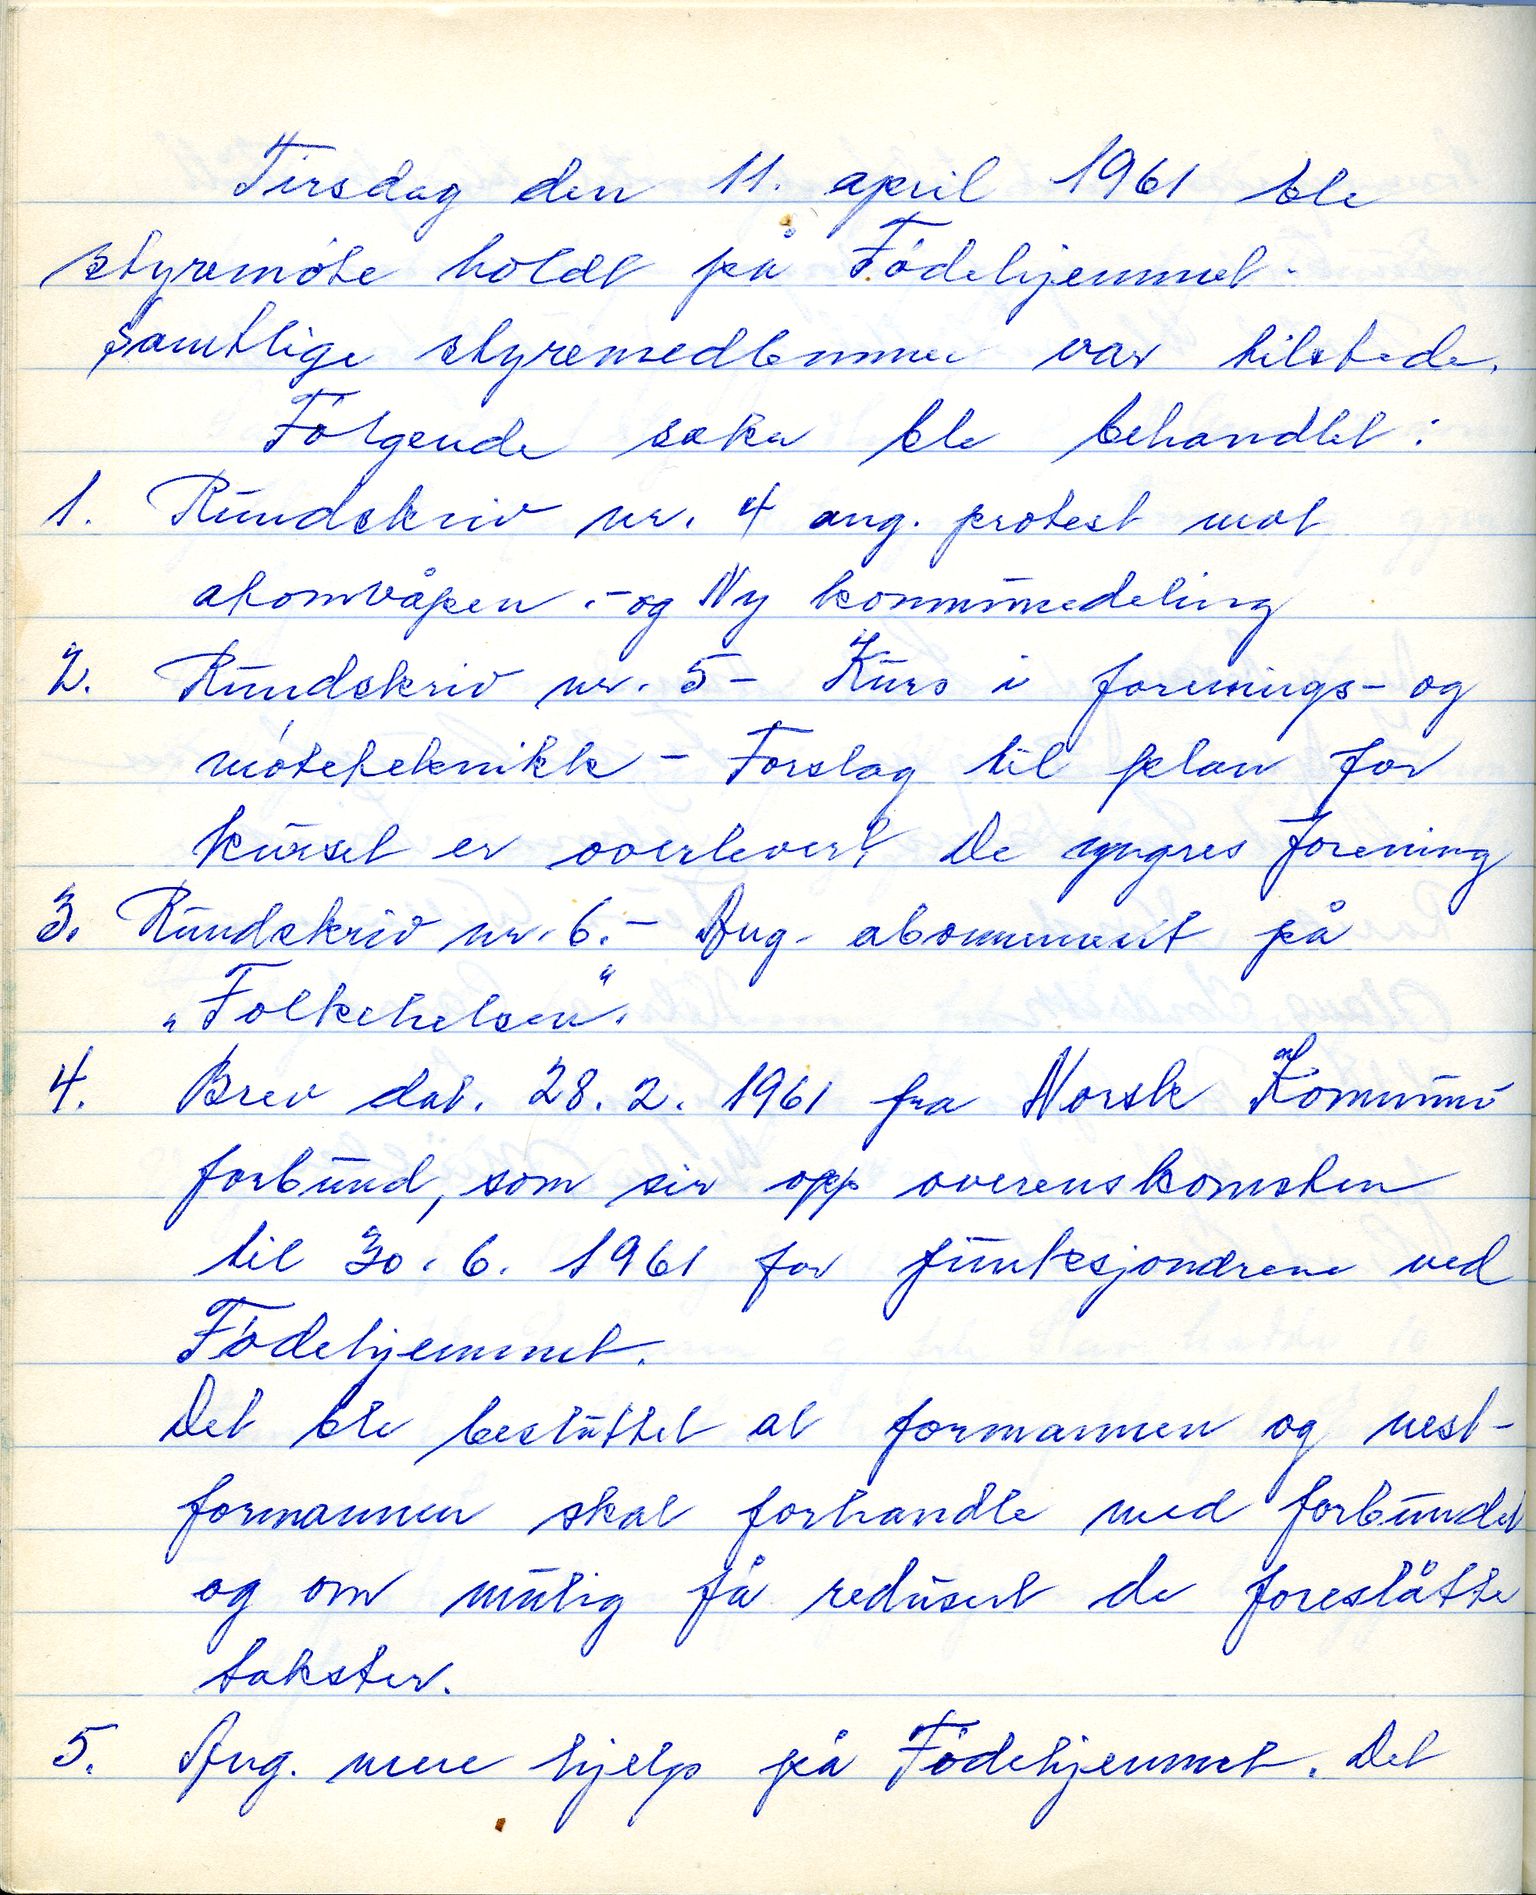 Tirsdag den 11. april 1961 ble
styremøte holdt på Fødehjemmet.
Samtlige styremedlemmer var tilstede.
Følgende saker ble behandlet:
1. Rundskriv nr. 4 ang. protest mot
atomvåpen - og Ny kommunedeling
2. Rundskriv nr. 5 - Kurs i forenings- og
møteteknikk - Forslag til plan for
kurset er overlevert De yngres forening
3. Rundskriv nr. 6. - Ang. abonnement på
„Folkehelsen".
4. Brev dat. 28.2.1961 fra Norsk Kommune
forbund, som sier opp overenskomsten
til 30.6.1961 for funksjonærene ved
Fødehjemmet.
Det ble besluttet at formannen og nest-
formannen skal forhandle med forbundet
og om mulig få redusert de foreslåtte
takster.
5. Ang. mere hjelp på Fødehjemmet. Det